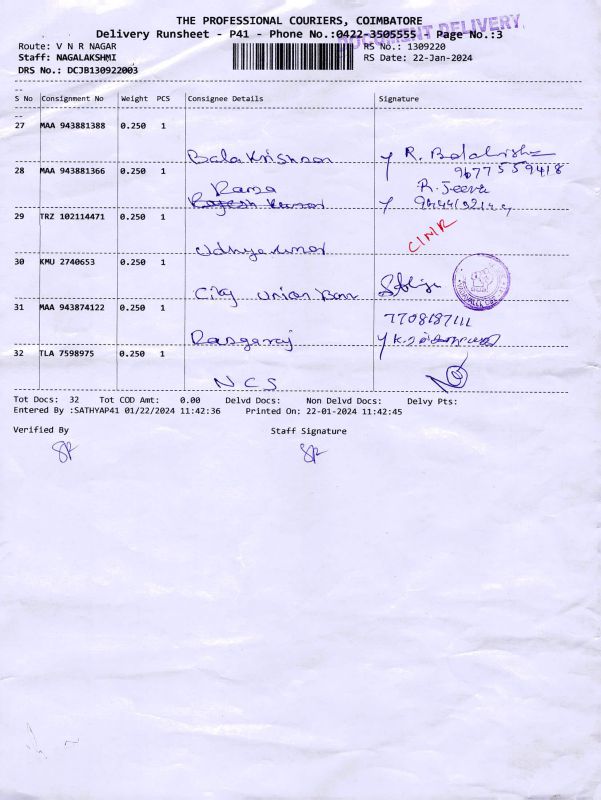 THE PROFESSIONAL COURIERS, COIMBATORE
Delivery Runsheet - P41 - Phone No.:0422-3505555 - Page No.:3
DOCUMENT DELIVERY
Route: V N R NAGAR RS No.: 1309220
Staff: NAGALAKSHMI RS Date: 22-Jan-2024
DRS No.: DCJB130922003
S No Consignment No Weight PCS Consignee Details Signature
27 MAA 943881388 0.250 1
Balakrishnan R. Balakrishn
9677559418
28 MAA 943881366 0.250 1
Rama R. Jeeva
Rajesh Kumar
29 TRZ 102114471 0.250 1
Udhyakumar
30 KMU 2740653 0.250 1
City Union Ban
31 MAA 943874122 0.250 1 7708187111
Rangaraj
32 TLA 7598975 0.250 1
NCS
Tot Docs: 32 Tot COD Amt: 0.00 Delvd Docs: Non Delvd Docs: Delvy Pts:
Entered By :SATHYAP41 01/22/2024 11:42:36 Printed On: 22-01-2024 11:42:45
Verified By Staff Signature